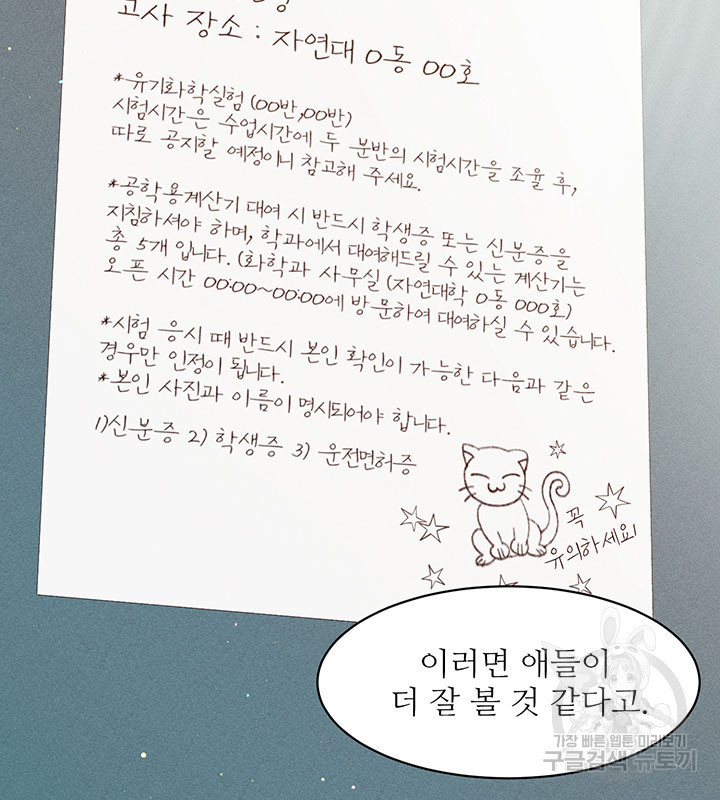 고사 장소 : 자연대 0동 00호
*유기화학실험 (00반,00반)
시험시간은 수업시간에 두 분반의 시험시간을 조율 후,
따로 공지할 예정이니 참고해 주세요.
*공학용계산기 대여 시 반드시 학생증 또는 신분증을
지침하셔야 하며, 학과에서 대여해드릴 수 있는 계산기는
총 5개 입니다. (화학과 사무실 (자연대학 0동 000호)
오픈 시간 00:00~00:00에 방문하여 대여하실 수 있습니다.
*시험 응시 때 반드시 본인 확인이 가능한 다음과 같은
경우만 인정이 됩니다.
*본인 사진과 이름이 명시되어야 합니다.
1)신분증 2) 학생증 3) 운전면허증
꼭
유의하세요!
이러면 애들이
더 잘 볼 것 같다고.
가장 빠른 웹툰 미리보기
구글검색 뉴토끼